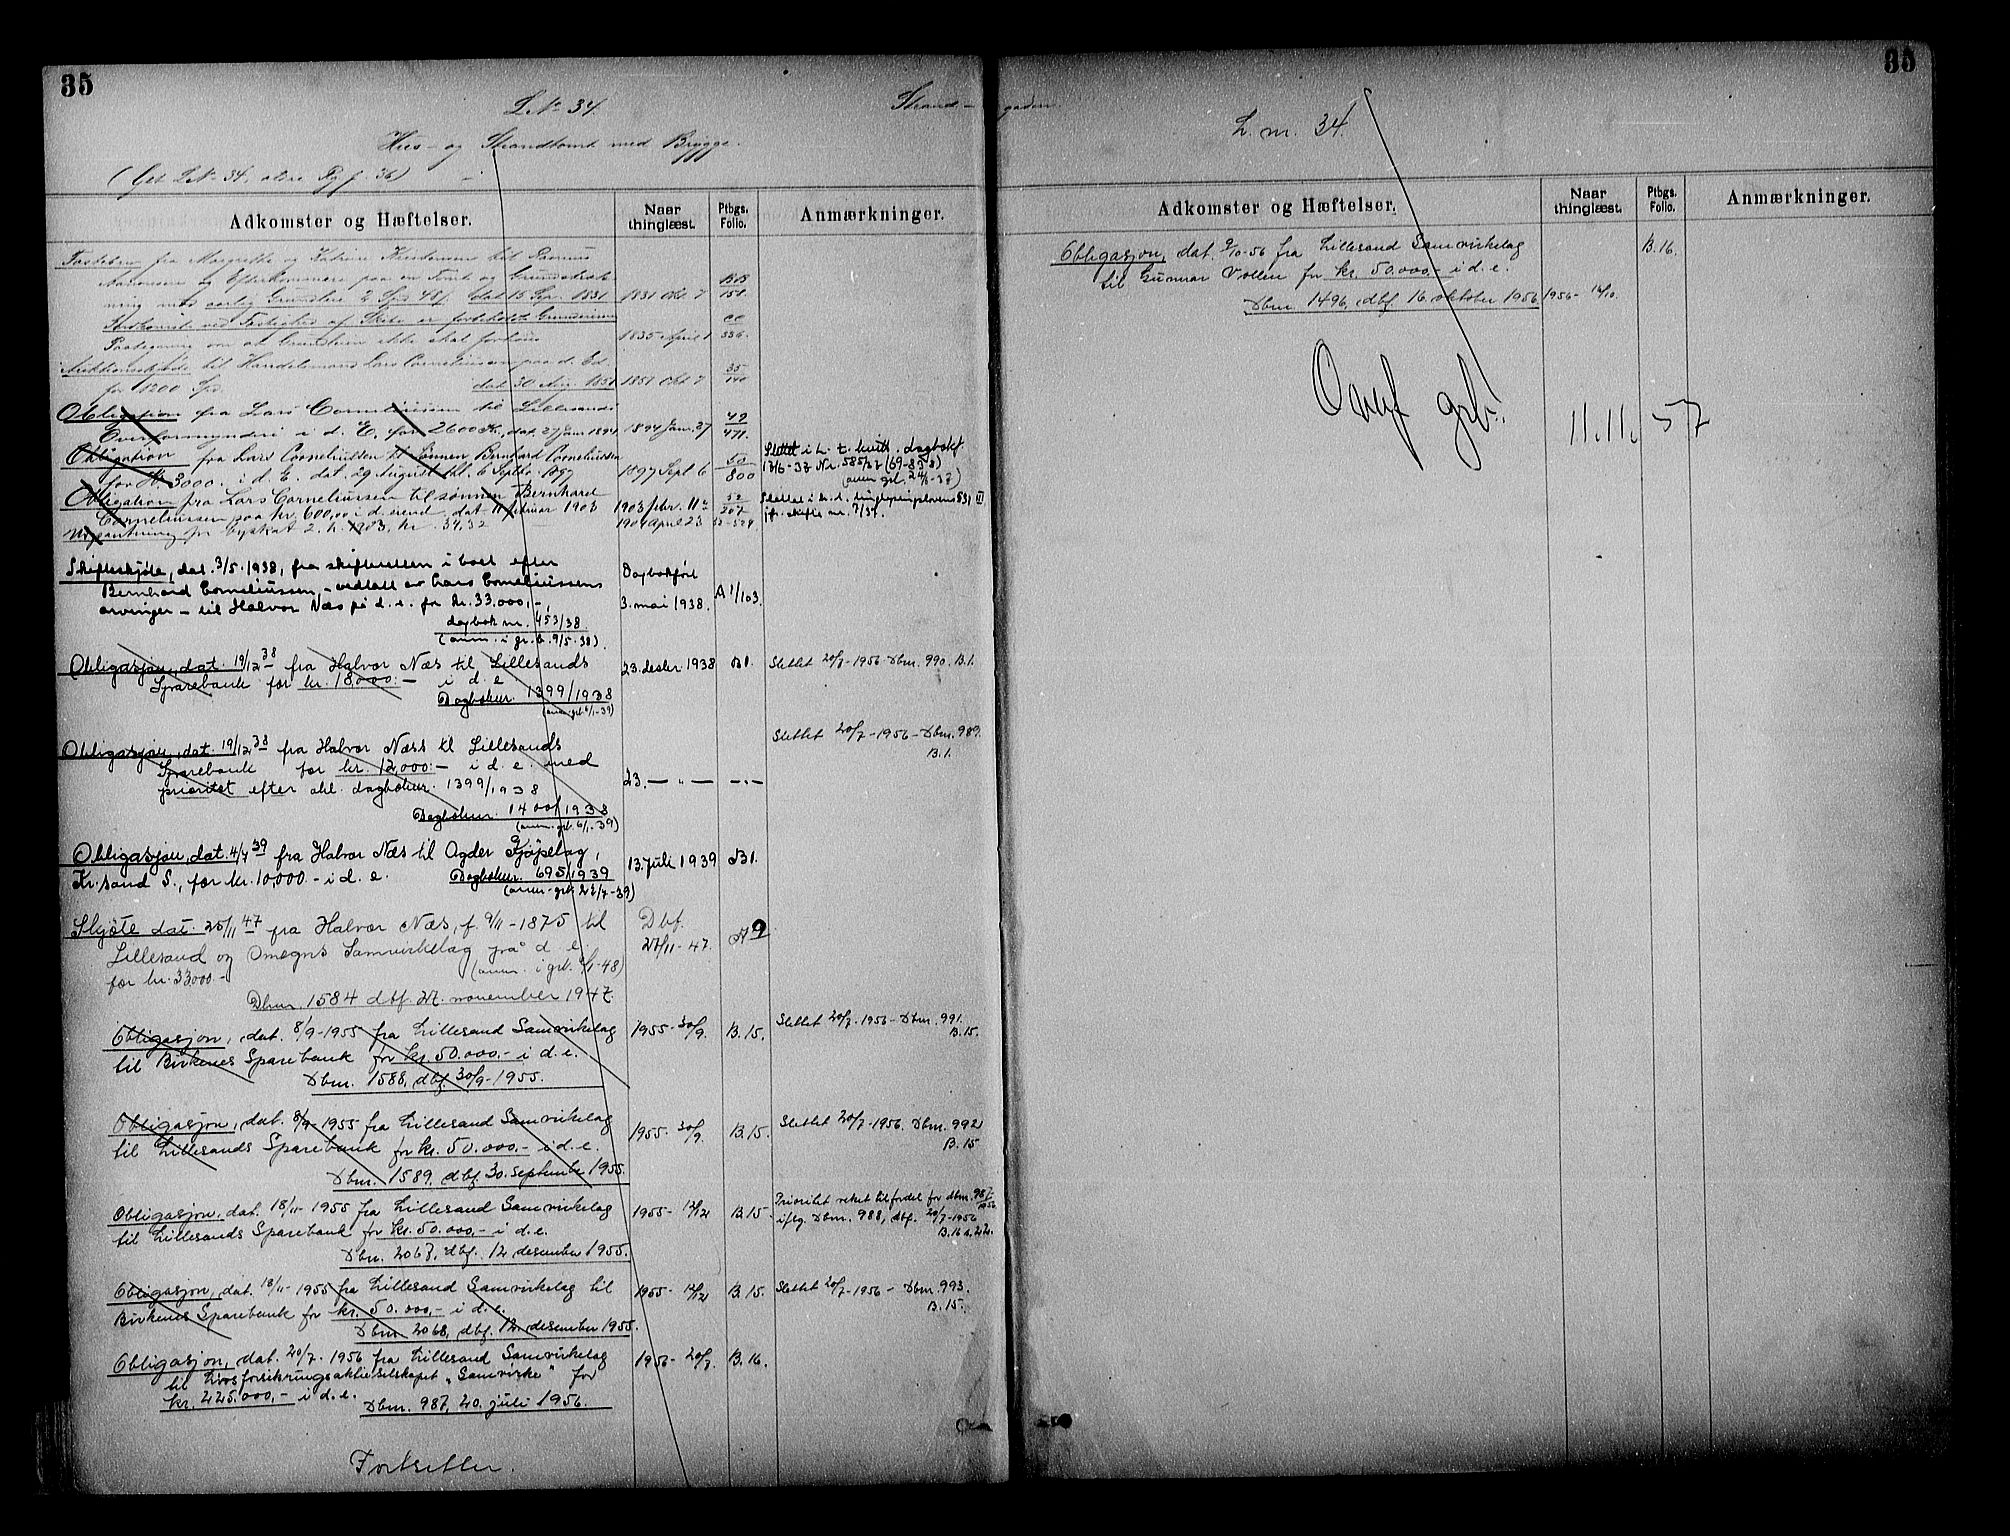 35
L. No 34.
Strand-
Hus- og Strandtomt med Brygge.
(Gl. L No 34, ældre Pg. f. 36)
Adkomster og Hæftelser.
Naar thinglæst.
Ptbgs. Folio.
Anmærkninger.
Festebrev fra Margrethe og Katrine til
og Efterkommere paa en Tomt og
ning mod aarlig Grundleie 2 Spd 48 s. dat 15 Sep. 1831 1831 Okt 7 151.
Paategning om at Grundleien ikke skal 1835 April 1 336.
Auktionsskjøde til Handelsmand Lars Corneliussen paa d. Ed. 35
for 1200 Spd. dat 30 Aug. 1851 1851 Okt 7 140
Obligation fra Lars Corneliussen til Lillesands 49
Overformynderi i d. E. for 2600 Kr., dat. 27 Jan 1894. 1894 Jan. 27 471.
Obligation fra Lars Corneliussen til Sønnen Bernhard Corneliussen 50 Slettet i h. t. kvitt. dagbokf.
for Kr 3000. i d. E. dat. 29 August thl. 6 Septbr. 1897 1897 Sept 6 800 17/6-37 Nr. 585/37 (69-838)
(anm grb. 24/6-37)
Obligation fra Lars Corneliussen til sønnen Bernhard 52 Slettet i h. t. tinglysningslovens §31 III
Corneliussen paa kr. 600,00 i d. eiend, dat 11 februar 1903 1903 febr. 11 207 jfr. skifte nr. 7/37.
Utpantning for byskat 2. h. 1903, kr. 34.32 1904 April 23 52-524
Skifteskjøte, dat. 3/5-1938, fra skifteretten i boet efter
Bernhard Corneliussen, - vedtatt av Lars Corneliussens
arvinger - til Halvor Næs på d. e. for kr. 33.000,-,
Dagbokført
3. mai 1938. A 1/103.
dagbok nr. 453/38.
(anm. i gr. b. 9/5-38).
Obligasjon, dat. 19/12 38 fra Halvor Næs til Lillesands 23. desbr. 1938 B1. Slettet 20/7-1956-Dbnr. 990. B.1.
Sparebank for kr. 18,000:- i d. e
Dagboknr. 1399/1938
(anm. grb. 6/1-39)
Obligasjon, dat. 19/12 38 fra Halvor Næss til Lillesands Slettet 20/7-1956-Dbnr. 989.
B.1.
Sparebank for kr. 12,000:- i d. e. med
prioritet efter obl. dagboknr. 1399/1938 23. — " — — " —
Dagboknr. 1400/1938
(anm. grb. 6/1-39)
Obligasjon, dat. 4/7 39 fra Halvor Næs til Agder Kjøpelag, 13. juli 1939 B1.
Kr.sand S., for kr. 10,000.- i d. e. Dagboknr. 695/1939
(anm. grb. 22/7-39)
Skjøte dat. 25/11 47 fra Halvor Næs, f. 9/11-1875 til Dbf.
Lillesand og Omegns Samvirkelag på d. e. 27/11-47. A 9
for kr. 33000.- (anm. i grb. 6/1-48)
Dbnr. 1584 dbf. 27. november 1947.
Obligasjon, dat. 8/9-1955 fra Lillesand Samvirkelag 1955-30/9. B. 15. Slettet 20/7. 1956-Dbnr. 991.
B. 15.
til Birkenes Sparebank for kr 50.000.- i d. e.
Dbnr. 1588, dbf. 30/9-1955.
Obligasjon, dat. 8/9-1955 fra Lillesand Samvirkelag 1955-30/9. B. 15. Slettet 20/7-1956. Dbnr. 992
B. 15
til Lillesands Sparebank for kr. 50.000.- i d. e.
Dbnr. 1589, dbf. 30. september 1955.
Obligasjon, dat. 18/11-1955 fra Lillesand Samvirkelag 1955-12/12 B. 15. Prioritet veket til fordel for dbnr. 987/1956
iflg. Dbnr. 988, dbf. 20/7-1956
B. 16 s. 22.
til Lillesands Sparebank for kr. 50.000,- i d. e.
Dbnr. 2067, dbf. 12 desember 1955.
Obligasjon, dat. 18/11-1955 fra Lillesand Samvirkelag til 1955-12/12 B. 15. Slettet 20/7-1956-Dbnr. 993.
B. 15.
Birkenes Sparebank for kr. 50.000,- i d. e.
Dbnr. 2068, dbf. 12. desember 1955.
Obligasjon, dat. 20/7. 1956 fra Lillesand Samvirkelag 1956-20/7 B. 16.
til Livsforsikringsaktieselskapet "Samvirke" for
kr. 225.000,- i d. e.
Dbnr. 987, 20. juli 1956.
Fortsetter.
35
gaden.
L. nr. 34.
Adkomster og Hæftelser.
Naar thinglæst.
Ptbgs. Folio.
Anmærkninger.
Obligasjon, dat. 9/10-56 fra Lillesand Samvirkelag B. 16.
til Gunnar Vollen for kr. 50.000,- i d. e.
Dbnr 1496, dbf. 16 oktober 1956 1956-16/10.
Overf grb.
11.11.57